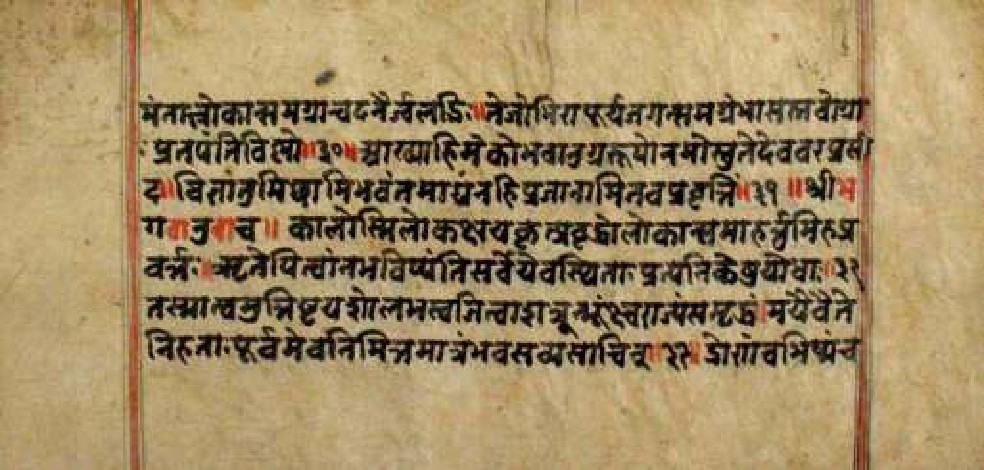 मंताल्लोकान्समग्रान्वदनैर्ज्वलद्भिः॥तेजोभिरापूर्यजगत्समग्रंभासस्तवोग्रा
ःप्रतपंतिविष्णो॥३०॥आख्याहिमेकोभवानुग्ररूपोनमोस्तुतेदेववरप्रसी
द॥विज्ञातुमिछामिभवंतमाद्यंनहिप्रजानामितवप्रवृत्तिं॥३१॥श्रीभ
गवानुवाच॥कालोस्मिलोकक्षयकृत्प्रवृद्धोलोकान्समाहर्त्तुमिहप्र
वर्त्तः॥ऋतेपित्वांनभविष्यंतिसर्वेयेवस्थिताःप्रत्यनिकेषुयोधाः॥३२
तस्मात्त्वमुत्तिष्टयशोलभस्वजित्वाशत्रून्भुंक्ष्वराज्यंसमृद्धं॥मयैवैते
निहताःपूर्वमेवनिमित्तमात्रंभवसव्यसाचिन्॥३३॥द्रोणंचभिष्मंच